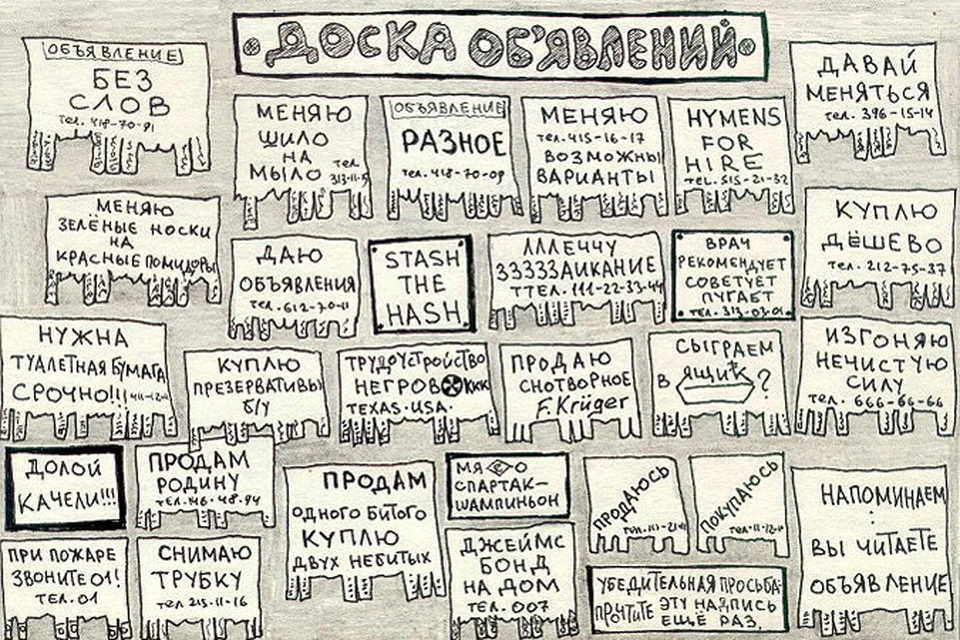 ДОСКА ОБ'ЯВЛЕНИЙ
ОБЪЯВЛЕНИЕ
БЕЗ
СЛОВ
тел. 419-70-91
МЕНЯЮ
ШИЛО
НА
МЫЛО
тел.
ОБЪЯВЛЕНИЕ
РАЗНОЕ
тел. 418-70-09
МЕНЯЮ
тел. 415-16-17
ВОЗМОЖНЫ
ВАРИАНТЫ
HYMENS
FOR
HIRE
TEL. 515-21-32
ДАВАЙ
МЕНЯТЬСЯ
тел. 396-15-14
МЕНЯЮ
ЗЕЛЁНЫЕ НОСКИ
НА
КРАСНЫЕ ПОМИДОРЫ
ДАЮ
ОБЪЯВЛЕНИЯ
тел. 612-70-11
STASH
THE
HASH
ЛЛЛЕЧЧУ
ЗЗЗЗЗАИКАНИЕ
ТТЕЛ. 111-22-33-44
ВРАЧ
РЕКОМЕНДУЕТ
СОВЕТУЕТ
ПУГАЕТ
тел. 313-03-01
КУПЛЮ
ДЁШЕВО
тел. 212-75-37
НУЖНА
ТУАЛЕТНАЯ БУМАГА
СРОЧНО!!!
КУПЛЮ
ПРЕЗЕРВАТИВЫ
Б/У
ТРУДОУСТРОЙСТВО
НЕГРОВ KKK
TEXAS·USA·
ПРОДАЮ
СНОТВОРНОЕ
F.Krüger
СЫГРАЕМ
В ЯЩИК?
ИЗГОНЯЮ
НЕЧИСТУЮ
СИЛУ
тел. 666-66-66
ДОЛОЙ
КАЧЕЛИ!!!
ПРОДАМ
РОДИНУ
тел. 146-48-94
ПРОДАМ
ОДНОГО БИТОГО
КУПЛЮ
ДВУХ НЕБИТЫХ
МЯСО
СПАРТАК-
ШАМПИНЬОН
ПРОДАЮСЬ
ПОКУПАЮСЬ
НАПОМИНАЕМ
:
ВЫ ЧИТАЕТЕ
ОБЪЯВЛЕНИЕ
ПРИ ПОЖАРЕ
ЗВОНИТЕ 01!
ТЕЛ. 01
СНИМАЮ
ТРУБКУ
тел 215-11-16
ДЖЕЙМС
БОНД
НА ДОМ
ТЕЛ. 007
УБЕДИТЕЛЬНАЯ ПРОСЬБА:
ПРОЧТИТЕ ЭТУ НАДПИСЬ
ЕЩЁ РАЗ.